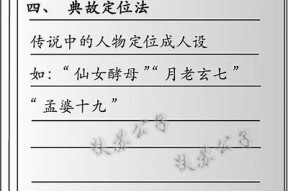 四、典故定位法
传说中的人物定位成人设
如：“仙女酵母”“月老玄七”
“孟婆十九”
扶苏公子
扶苏公子